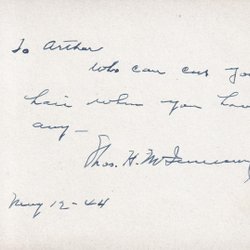 To Arthur
Who can cut you
hair when you have
any—
Thos. H. 
May 12-44